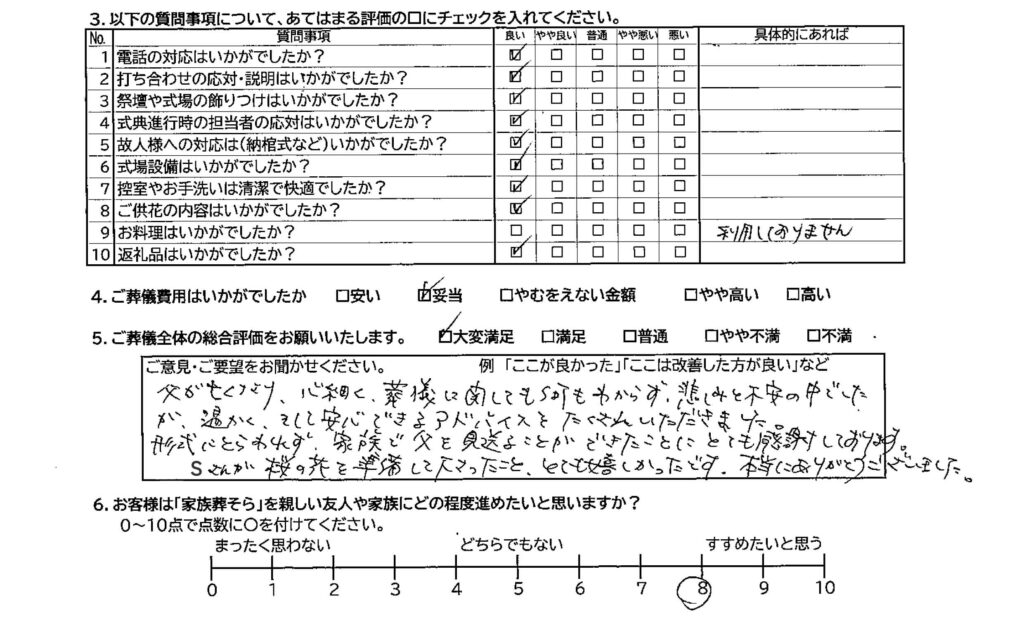 3. 以下の質問事項について、あてはまる評価の口にチェックを入れてください。
No. 質問事項 良い やや良い 普通 やや悪い 悪い 具体的にあれば
1 電話の対応はいかがでしたか? ☑ □ □ □ □
2 打ち合わせの応対・説明はいかがでしたか? ☑ □ □ □ □
3 祭壇や式場の飾りつけはいかがでしたか? ☑ □ □ □ □
4 式典進行時の担当者の応対はいかがでしたか? ☑ □ □ □ □
5 故人様への対応は(納棺式など)いかがでしたか? ☑ □ □ □ □
6 式場設備はいかがでしたか? ☑ □ □ □ □
7 控室やお手洗いは清潔で快適でしたか? ☑ □ □ □ □
8 ご供花の内容はいかがでしたか? ☑ □ □ □ □
9 お料理はいかがでしたか? □ □ □ □ □ 利用しておりません
10 返礼品はいかがでしたか? ☑ □ □ □ □
4. ご葬儀費用はいかがでしたか □安い ☑妥当 □やむをえない金額 □やや高い □高い
5. ご葬儀全体の総合評価をお願いいたします。 ☑大変満足 □満足 □普通 □やや不満 □不満
ご意見・ご要望をお聞かせください。 例 「ここが良かった」「ここは改善した方が良い」など
父が亡くなり、心細く、葬儀に関しても何もわからず、悲しみと不安の中でした
が、温かく、そして安心できるアドバイスをたくさんいただきました。
形式にとらわれず、家族で父を見送ることができたことにとても感謝しております。
Sさんが桜の花を準備して下さったこと、とても嬉しかったです。本当にありがとうございました。
6. お客様は「家族葬そら」を親しい友人や家族にどの程度進めたいと思いますか?
0～10点で点数に〇を付けてください。
まったく思わない どちらでもない すすめたいと思う
0 1 2 3 4 5 6 7 8 9 10